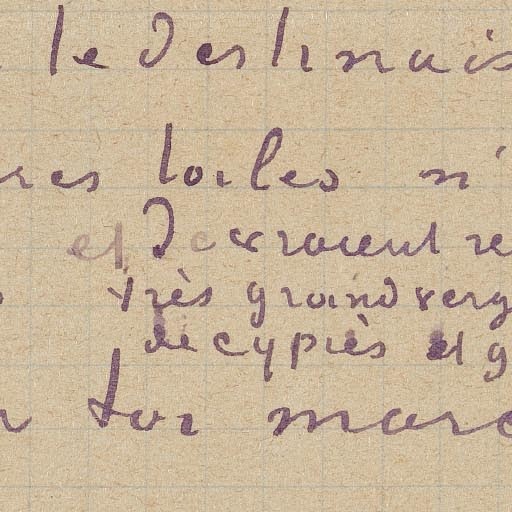 le destinais
res toiles n'
et devraient re
très grand verg
de cyprès et g
toi